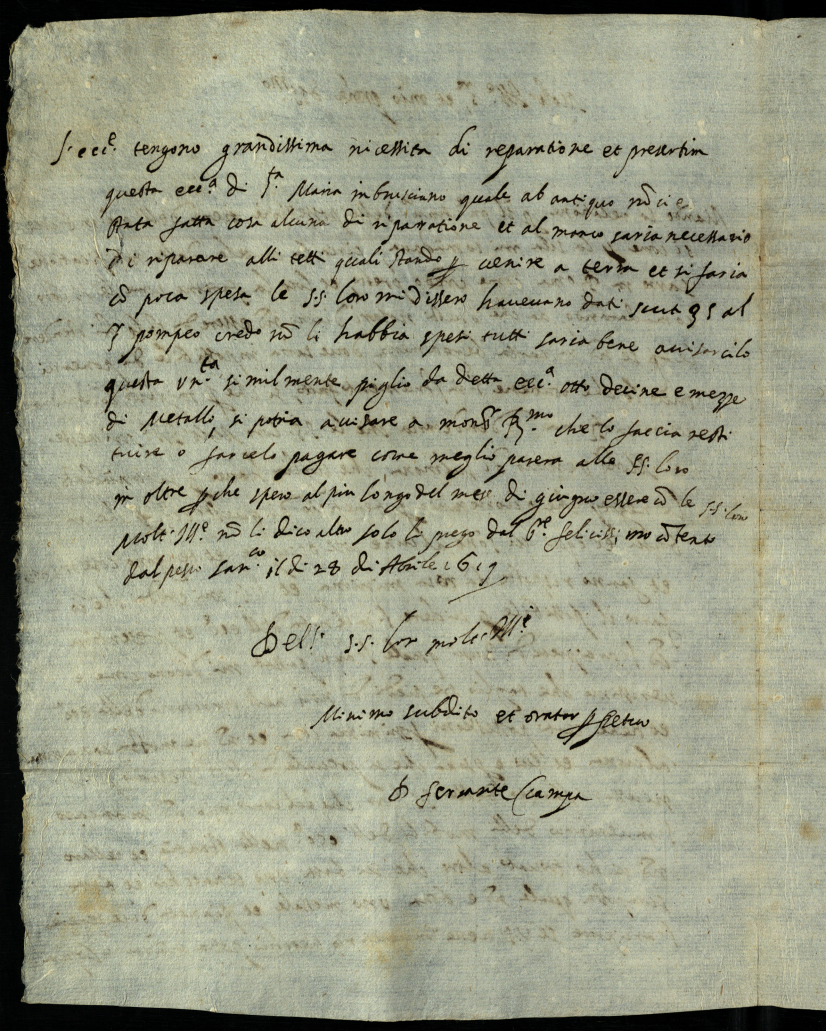 S. ecc.e tengono grandissima nicessita di reparatione et presertim
questa ecc.a di S.ta Maria in brusciano quale ab antiquo nō ci e
stata fatta cosa alcuna di riparratione et al manco saria necessario
di riparare alli tetti quali stando ꝑ venire a terra et si faria
cō poca spesa le S.S. loro mi dissero havevano dati scuti 35 al
pompeo credo nō li habbia spesi tutti saria bene avisarcilo
questa similmente piglio da detta ecc.a otto decine e mezze
di Metallo, si potria avisare a che lo faccia resti
tuire o farcelo pagare come meglio parera alle SS. loro
in oltre ꝑche spero al piu longo del mese di giugno essere cō le S.S. loro
Molt. Ill.e nō li dico altro solo li prego dal felicissimo cōtento
dal il di 28 di Aprile 1619
Dell. S.S. lor molt. Ill.e
Minimo subdito et orator ꝑpetuo
D ferrante Ciampa